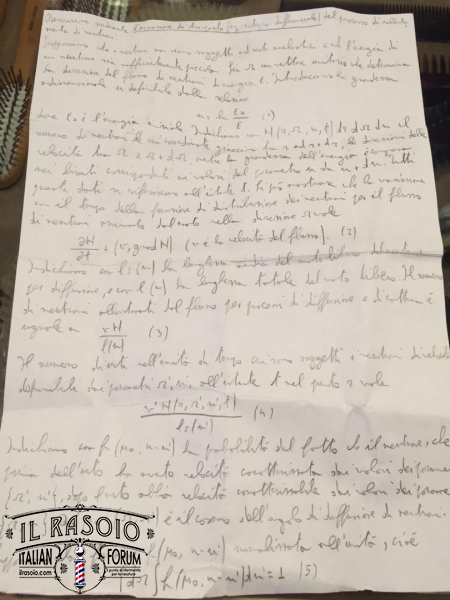 Descriviamo mediante l'equazione del trasporto (eq. integro differenziale) del processo di rallentamento
di neutroni
Supponiamo che i neutroni non siano soggetti ad urti anelastici e che l'energia di
un neutrone sia sufficientemente piccola. Sia Ω un vettore unitario che determina
la direzione del flusso di neutroni di energia E. Introduciamo la grandezza
adimensionale u definita dalla relazione
u = ln E₀/E (1)
dove E₀ è l'energia iniziale. Indichiamo con N(r, Ω, u, t) dr dΩ du il
numero di neutroni le cui coordinate giacciono fra r ed r+dr, le direzioni delle
velocità tra Ω e Ω+dΩ mentre la grandezza dell'energia è compresa
nei limiti corrispondenti ai valori del parametro u da u a u+du; tutti
questi dati si riferiscono all'istante t. Si può mostrare che la variazione
con il tempo della funzione di distribuzione dei neutroni per il flusso
di neutroni nella direzione Ω vale
∂N/∂t + (v, grad N) (v è la velocità del flusso). (2)
Indichiamo con ls(u) la lunghezza del moto libero
per diffusione, e con l(u) la lunghezza totale del moto libero. Il numero
di neutroni allontanati dal flusso per processi di diffusione e di cattura è
uguale a vN/l(u) (3)
Il numero di urti nell'unità di tempo cui sono soggetti i neutroni di velocità
definibile dai parametri Ω', u', all'istante t nel punto r vale
v' N(r, Ω', u', t)/ls(u') (4)
Indichiamo con f₀(μ₀, u-u') la probabilità del fatto che il neutrone, che
prima dell'urto ha avuto velocità caratterizzata dai valori dei parametri
{Ω', u'}, dopo l'urto abbia velocità caratterizzabile dai valori dei parametri
è il coseno dell'angolo di diffusione di neutroni.
(μ₀, u-u') normalizzata all'unità, cioè
∫dΩ ∫f₀(μ₀, u-u')du' = 1 (5)
IL RASOIO
ITALIAN FORUM
ilrasoio.com
il punto di riferimento
per la rasatura